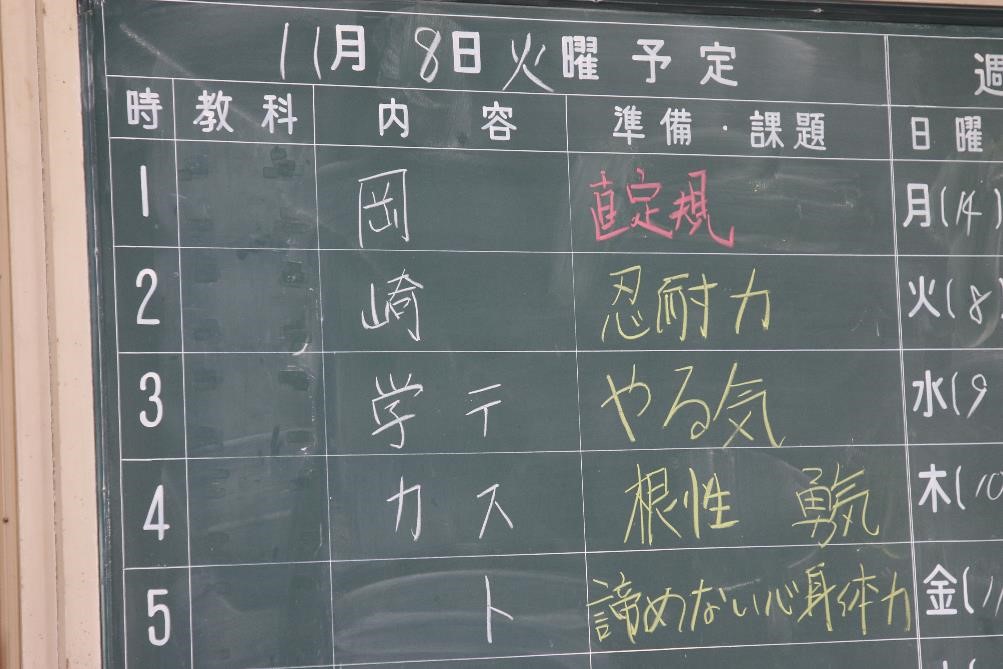 11月 8日 火曜 予定 週
時 教科 内容 準備・課題 日曜
1 岡 直定規 月(14)
2 崎 忍耐力 火(8)
3 学 テ やる気 水(9
4 力 ス 根性 勇気 木(10
5 ト 諦めない心 身体力 金(11